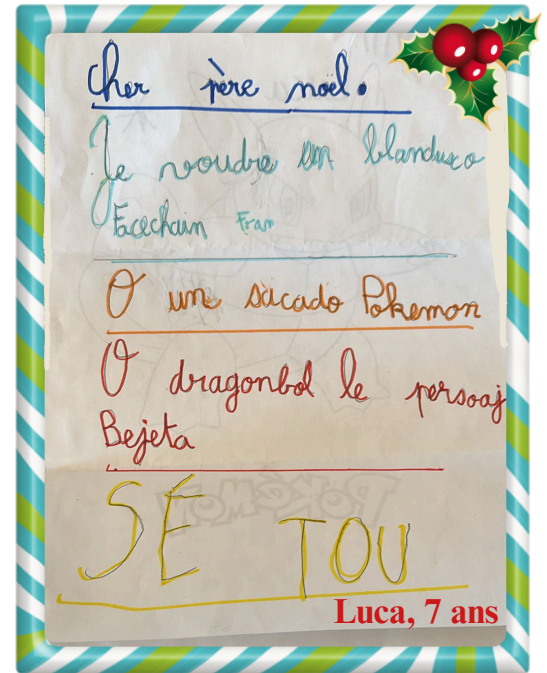 cher père noël.
Je voudre un blandusco
Facechain Fran
O un sacado Pokemon
O dragonbol le persoaj
Bejeta
POKÉMON
SÉ TOU
Luca, 7 ans